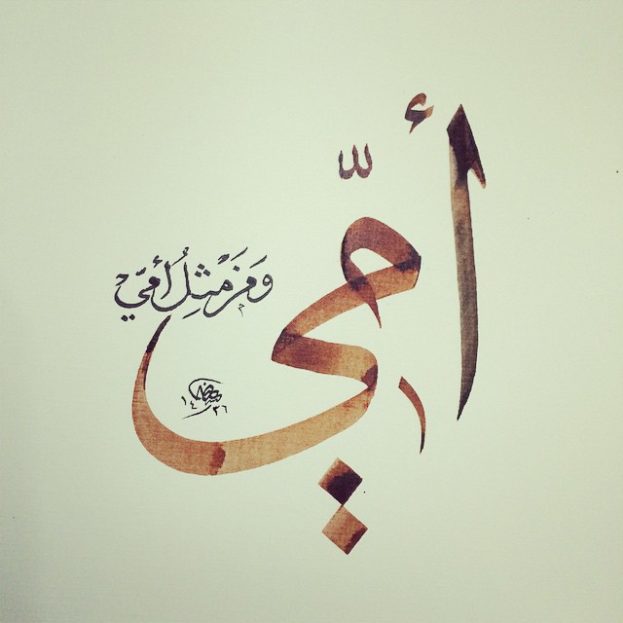 أمّي
وَمَن مِثلُ أُمّي
١٤٣٦